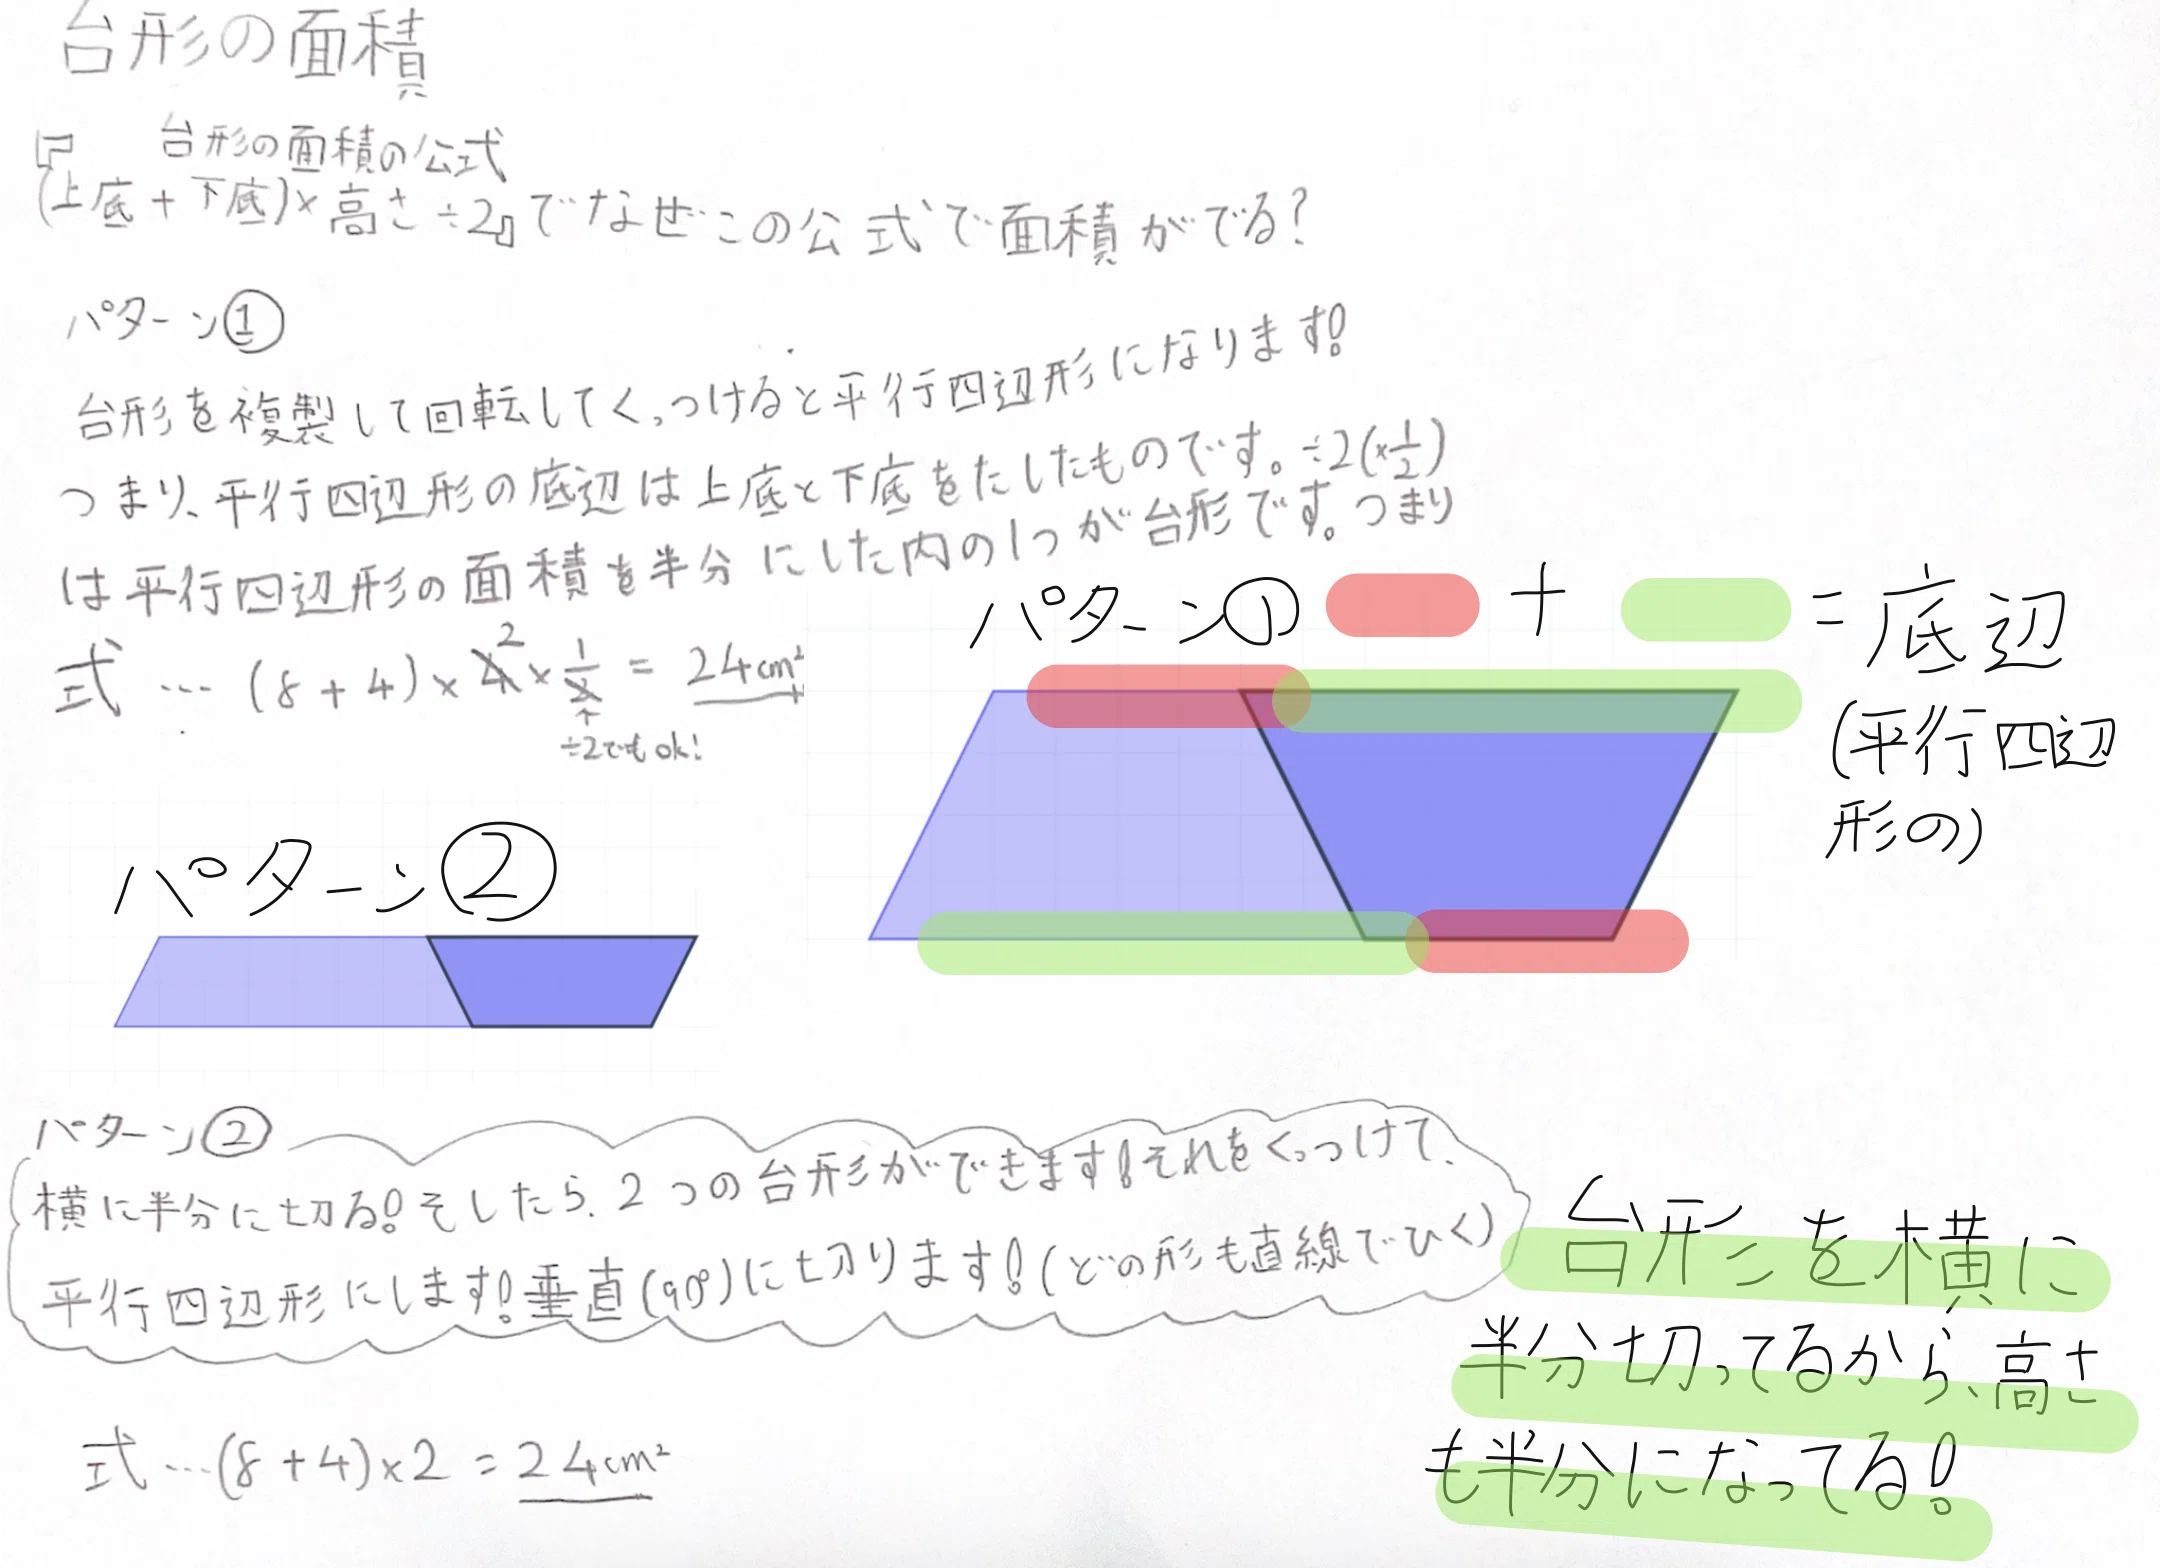 台形の面積
台形の面積の公式
『(上底+下底)×高さ÷2』でなぜこの公式で面積がでる?
パターン①
台形を複製して回転してくっつけると平行四辺形になります!
つまり、平行四辺形の底辺は上底と下底をたしたものです。÷2(×1/2)
は平行四辺形の面積を半分にした内の1つが台形です。つまり
式…(8+4)×4×1/2=24cm²
2
÷2でもok!
パターン① + =底辺
(平行四辺
形の)
パターン②
パターン②
横に半分に切る!そしたら、2つの台形ができます!それをくっつけて、
平行四辺形にします!垂直(90°)に切ります!(どの形も直線でひく)
式…(8+4)×2=24cm²
台形を横に
半分切ってるから、高さ
も半分になってる!